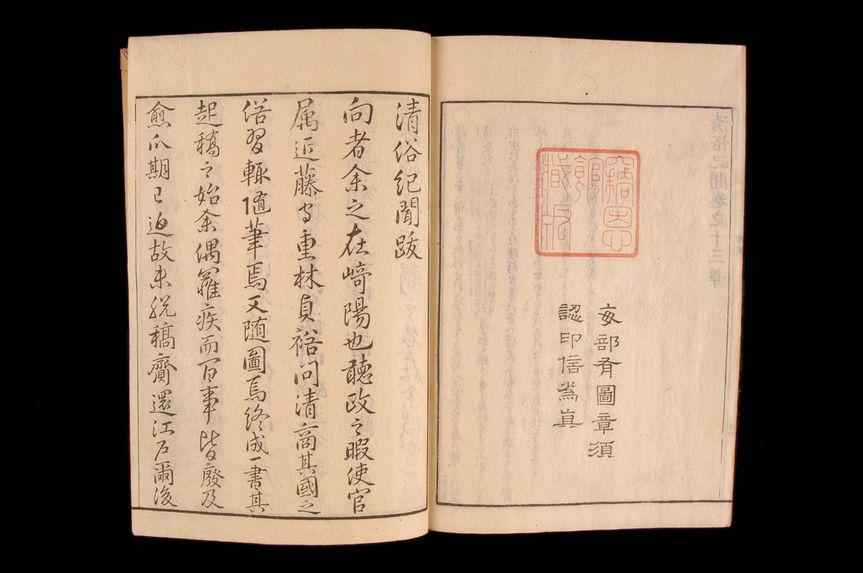 窮思
館
藏板
每部有圖章須
認印信為真
清俗紀聞跋
向者余之在崎陽也聽政之暇使官
属近藤守重林貞裕問清商其國之
俗習輙随筆焉又随圖焉終成一書其
起稿之始余偶罹疾而百事皆廢及
愈爪期已迫故未脱稿齎還江戸爾後